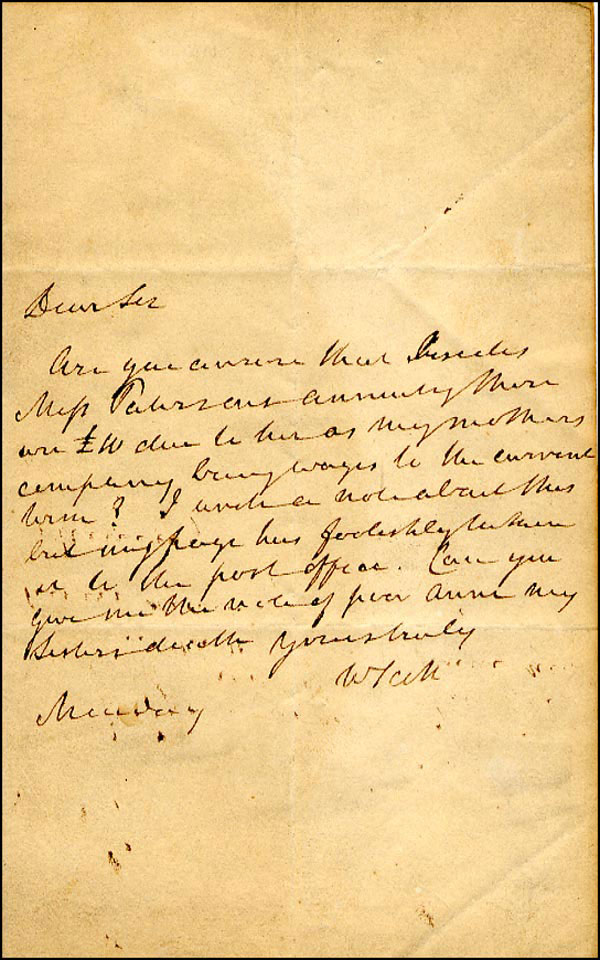 Dear Sir
Are you aware that besides
Miss Patersons annuity there
are £10 due to her as my mothers
company being wages to the current
term? I wrote a note about this
but my page has foolishly taken
it to the post office. Can you
give me the note of poor Anne my
Sisters death Yours truly
W Scott
Monday